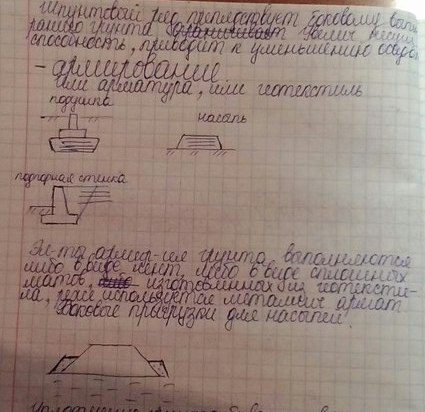 Шпунтовый ряд препядствует боковому выпи
ранию грунта увелич несущ
способность, приводит к уменьшению осадок
- армирование
или арматура, или геотекстиль
подушка
насыпь
подпорная стенка
Эл-ты армир-ия грунта выполняются
либо в виде лент, либо в виде сплошных
матов, изготовленных из геотексти-
ля, реже используется металлич армат.
Боковые пригрузки для насыпей.